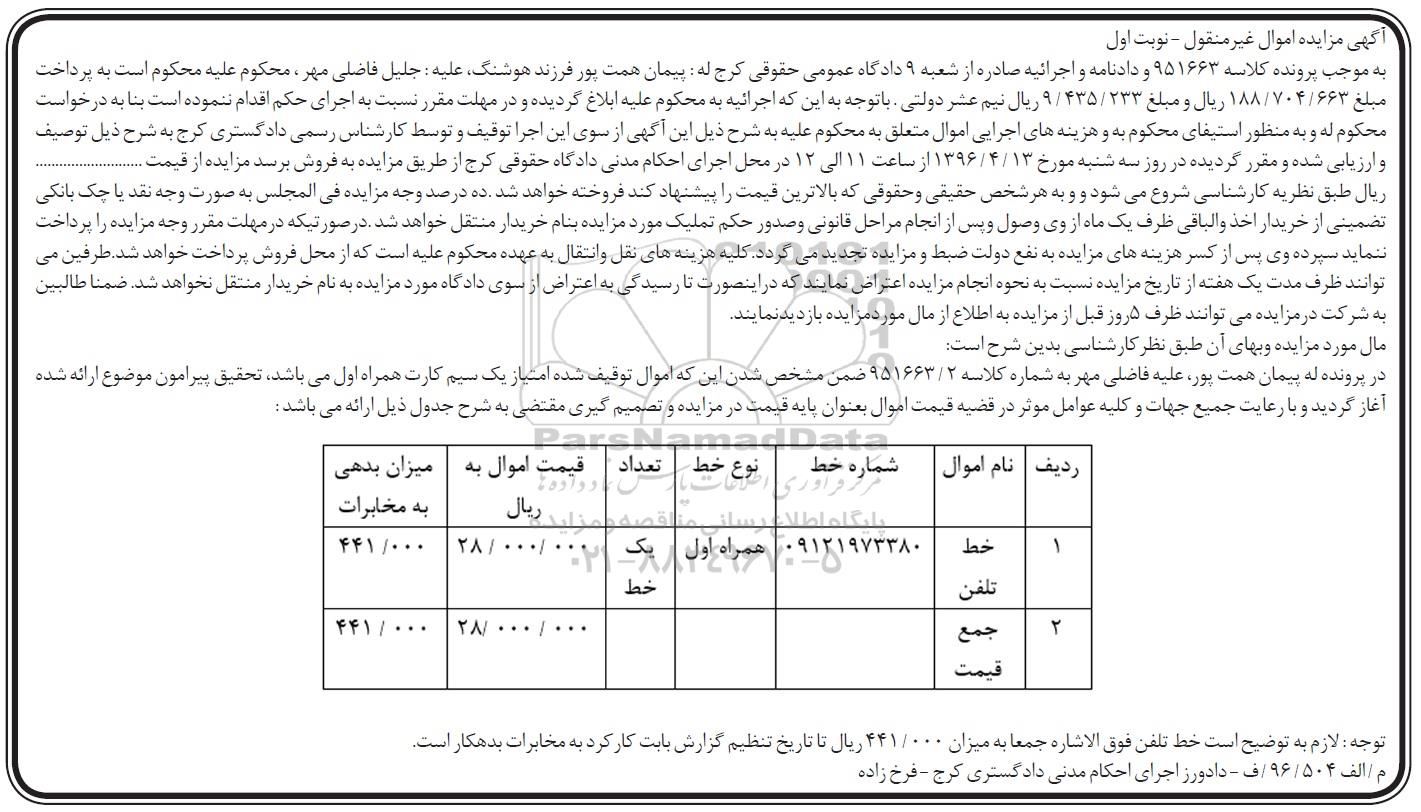 آگهی مزایده اموال غیرمنقول - نوبت اول
به موجب پرونده کلاسه ۹۵۱۶۶۳ و دادنامه و اجرائیه صادره از شعبه ۹ دادگاه عمومی حقوقی کرج له : پیمان همت پور فرزند هوشنگ، علیه : جلیل فاضلی مهر ، محکوم علیه محکوم است به پرداخت
مبلغ ۱۸۸/۷۰۴/۶۶۳ ریال و مبلغ ۹/۴۳۵/۲۳۳ ریال نیم عشر دولتی . باتوجه به این که اجرائیه به محکوم علیه ابلاغ گردیده و در مهلت مقرر نسبت به اجرای حکم اقدام ننموده است بنا به درخواست
محکوم له و به منظور استیفای محکوم به و هزینه های اجرایی اموال متعلق به محکوم علیه به شرح ذیل این آگهی از سوی این اجرا توقیف و توسط کارشناس رسمی دادگستری کرج به شرح ذیل توصیف
و ارزیابی شده و مقرر گردیده در روز سه شنبه مورخ ۱۳۹۶/۴/۱۳ از ساعت ۱۱ الی ۱۲ در محل اجرای احکام مدنی دادگاه حقوقی کرج از طریق مزایده به فروش برسد مزایده از قیمت ...........................
ریال طبق نظریه کارشناسی شروع می شود و و به هرشخص حقیقی وحقوقی که بالاترین قیمت را پیشنهاد کند فروخته خواهد شد .ده درصد وجه مزایده فی المجلس به صورت وجه نقد یا چک بانکی
تضمینی از خریدار اخذ والباقی ظرف یک ماه از وی وصول وپس از انجام مراحل قانونی وصدور حکم تملیک مورد مزایده بنام خریدار منتقل خواهد شد .درصورتیکه درمهلت مقرر وجه مزایده را پرداخت
ننماید سپرده وی پس از کسر هزینه های مزایده به نفع دولت ضبط و مزایده تجدید می گردد.کلیه هزینه های نقل وانتقال به عهده محکوم علیه است که از محل فروش پرداخت خواهد شد.طرفین می
توانند ظرف مدت یک هفته از تاریخ مزایده نسبت به نحوه انجام مزایده اعتراض نمایند که دراینصورت تا رسیدگی به اعتراض از سوی دادگاه مورد مزایده به نام خریدار منتقل نخواهد شد. ضمنا طالبین
به شرکت درمزایده می توانند ظرف ۵روز قبل از مزایده به اطلاع از مال موردمزایده بازدیدنمایند.
مال مورد مزایده وبهای آن طبق نظرکارشناسی بدین شرح است:
در پرونده له پیمان همت پور، علیه فاضلی مهر به شماره کلاسه ۹۵۱۶۶۳/۲ ضمن مشخص شدن این که اموال توقیف شده امتیاز یک سیم کارت همراه اول می باشد، تحقیق پیرامون موضوع ارائه شده
آغاز گردید و با رعایت جمیع جهات و کلیه عوامل موثر در قضیه قیمت اموال بعنوان پایه قیمت در مزایده و تصمیم گیری مقتضی به شرح جدول ذیل ارائه می باشد :
ParsNamadData
مرکز فرآوری اطلاعات پارس نماد داده ها
پایگاه اطلاع رسانی مناقصه و مزایده
۰۲۱-۸۸۳۴۹۶۷۰-۵
ردیف نام اموال شماره خط نوع خط تعداد قیمت اموال به میزان بدهی
ریال به مخابرات
۱ خط ۰۹۱۲۱۹۷۳۳۸۰ همراه اول یک ۲۸/۰۰۰/۰۰۰ ۴۴۱/۰۰۰
تلفن خط
۲ جمع ۲۸/۰۰۰/۰۰۰ ۴۴۱/۰۰۰
قیمت
توجه : لازم به توضیح است خط تلفن فوق الاشاره جمعا به میزان ۴۴۱/۰۰۰ ریال تا تاریخ تنظیم گزارش بابت کارکرد به مخابرات بدهکار است.
م/الف ۹۶/۵۰۴/ف - دادورز اجرای احکام مدنی دادگستری کرج - فرخ زاده